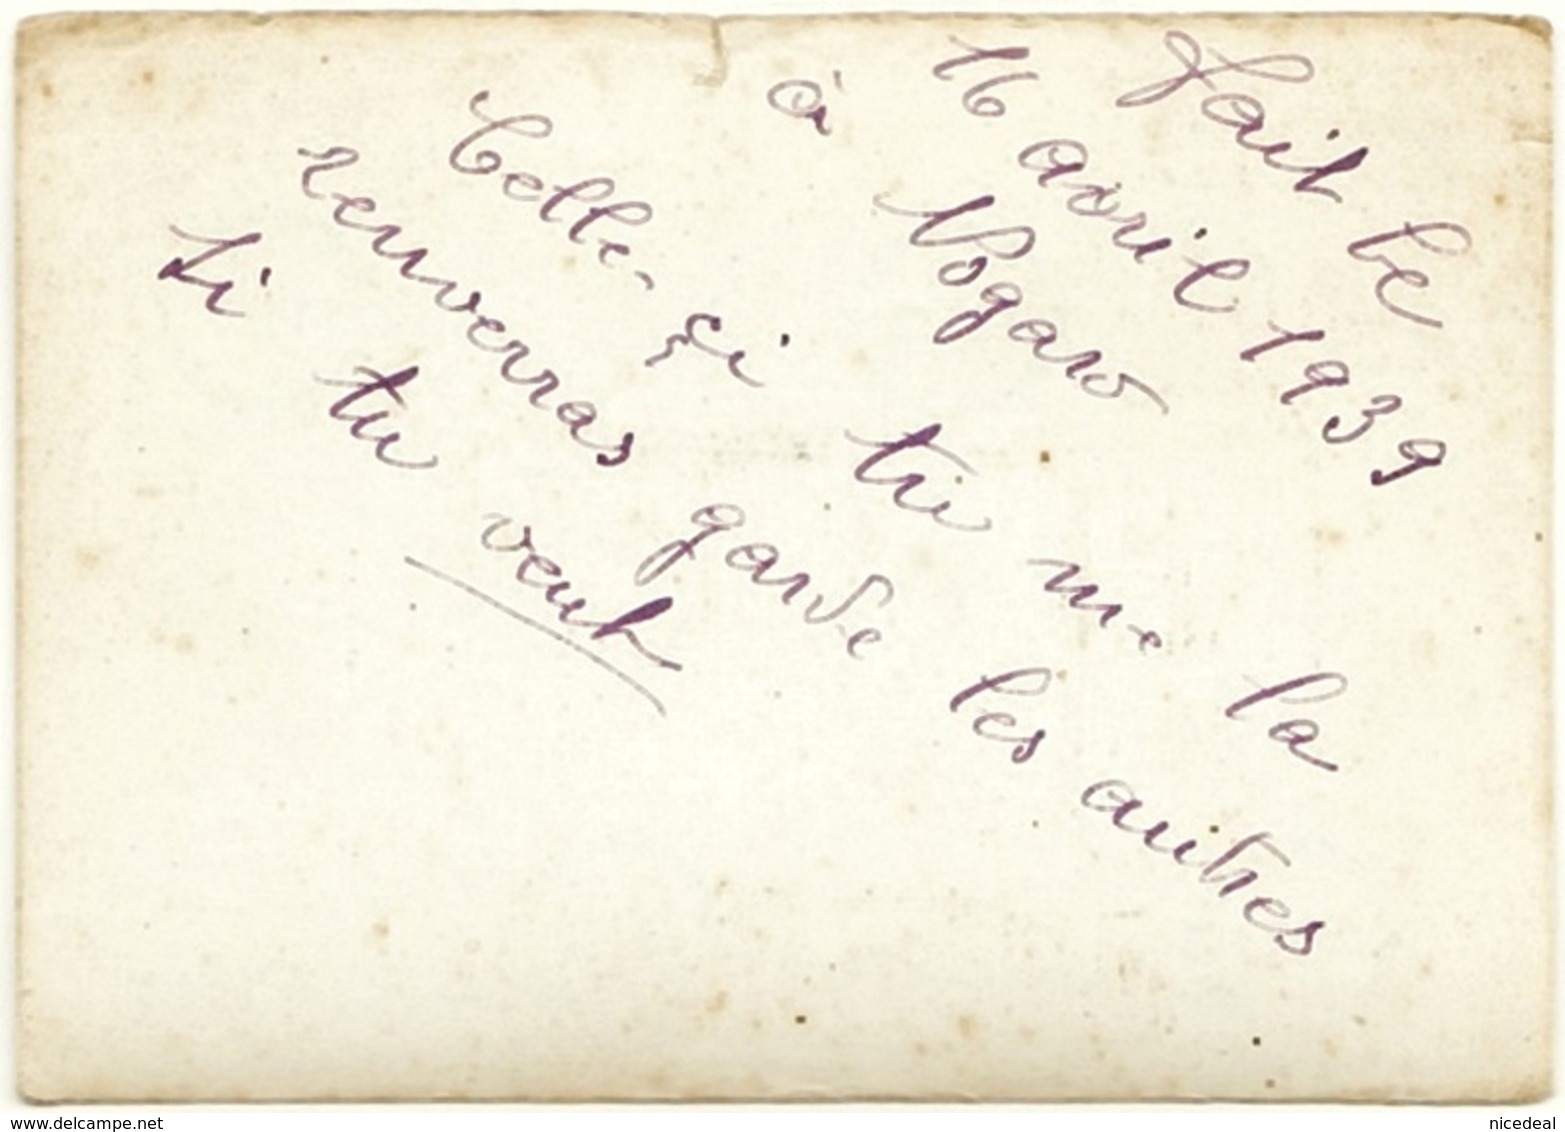 fait le
16 avril 1939
à Nogaro
Celle-çi tu me la
renverras garde les autres
si tu veut
www.delcampe.net
nicedeal